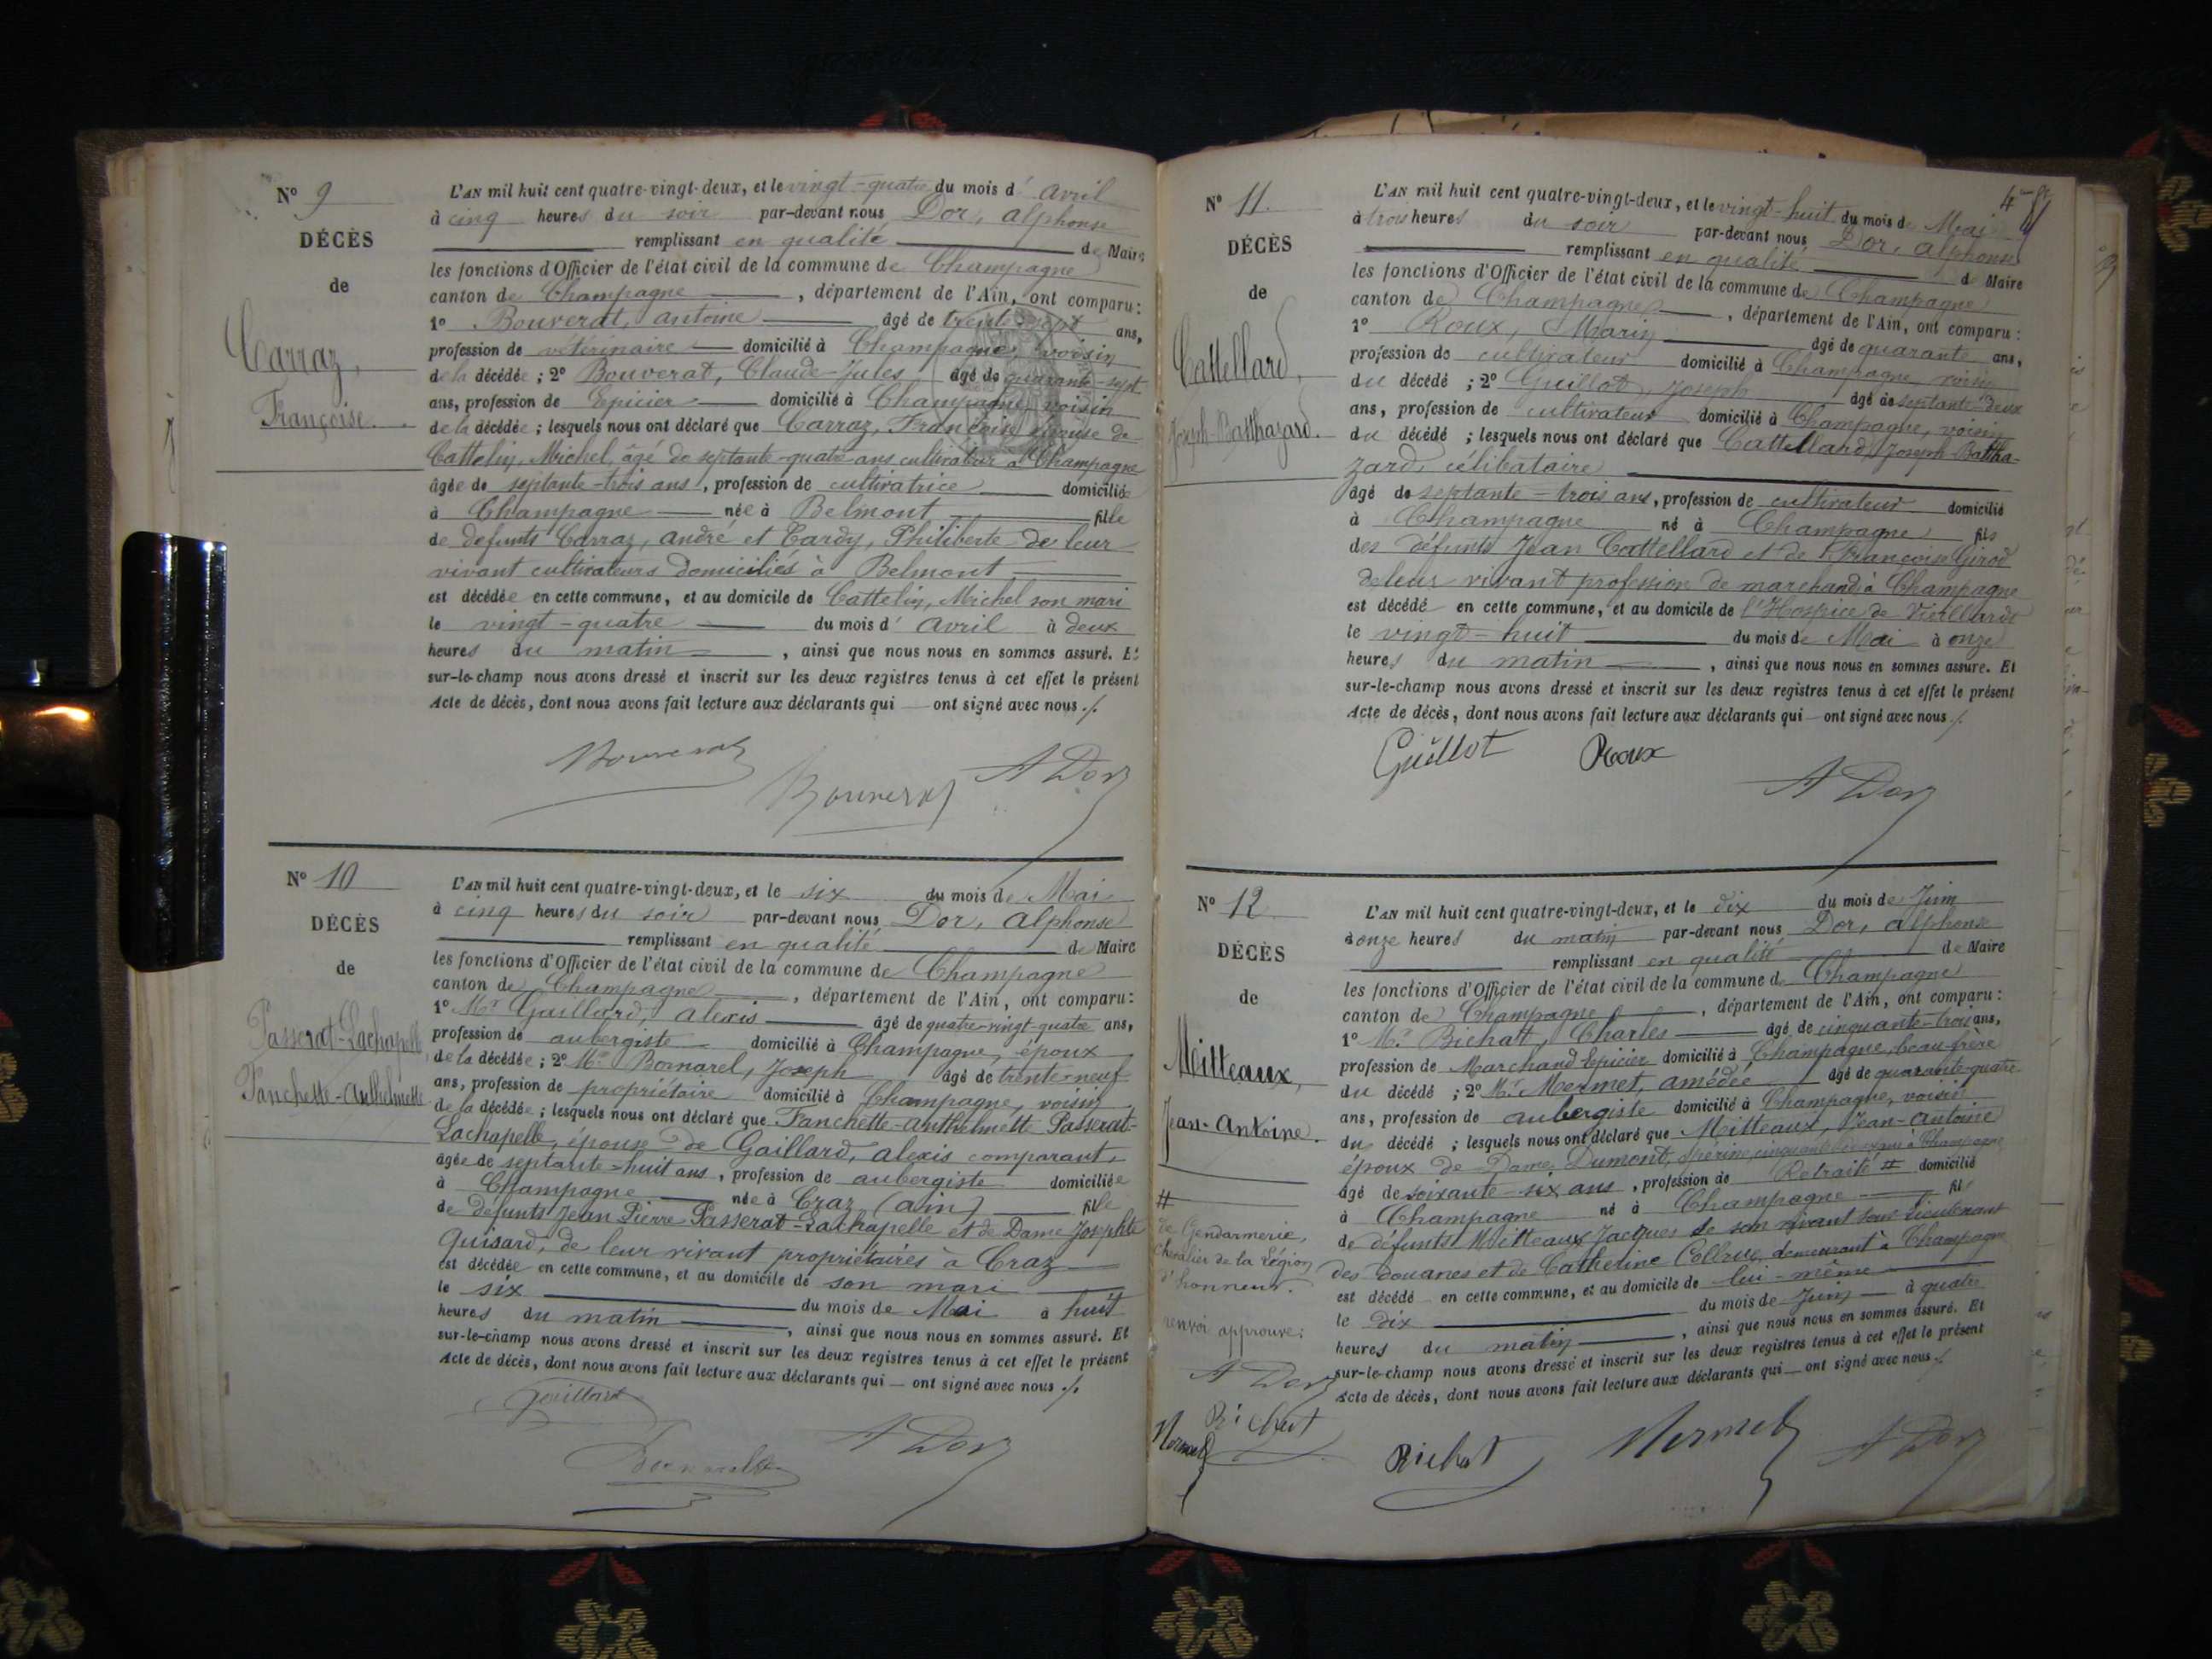 N° 9
DÉCÈS
de
Carraz,
Françoise.
L'AN mil huit cent quatre-vingt-deux, et le vingt-quatre du mois d' avril
à cinq heures du soir par-devant nous Dor, alphonse
remplissant en qualité de Maire
les fonctions d'Officier de l'état civil de la commune de Champagne
canton de Champagne, département de l'Ain, ont comparu:
1° Bouverat, antoine âgé de trente-sept ans,
profession de vétérinaire domicilié à Champagne, voisin
de la décédée; 2° Bouverat, Claude-Jules âgé de quarante-sept
ans, profession de Epicier domicilié à Champagne, voisin
de la décédée; lesquels nous ont déclaré que Carraz, Françoise épouse de
Cattelin, Michel, âgé de septante-quatre ans cultivateur à Champagne
âgée de septante-trois ans, profession de cultivatrice domiciliée
à Champagne née à Belmont fille
de defunts Carraz, andré et Cardy, Philiberte de leur
vivant cultivateurs domiciliés à Belmont
est décédée en cette commune, et au domicile de Cattelin, Michel son mari
le vingt-quatre du mois d' avril à deux
heures du matin, ainsi que nous nous en sommes assuré. Et
sur-le-champ nous avons dressé et inscrit sur les deux registres tenus à cet effet le présent
Acte de décès, dont nous avons fait lecture aux déclarants qui — ont signé avec nous ./.
Bouverat
Bouverat
A Dor
N° 10
DÉCÈS
de
Passerat-Lachapelle,
Fanchette-Anthelmette
L'AN mil huit cent quatre-vingt-deux, et le six du mois de Mai
à cinq heures du soir par-devant nous Dor, alphonse
remplissant en qualité de Maire
les fonctions d'Officier de l'état civil de la commune de Champagne
canton de Champagne, département de l'Ain, ont comparu:
1° Mr Gaillard, alexis âgé de quatre-vingt-quatre ans,
profession de aubergiste domicilié à Champagne, époux
de la décédée; 2° Mr Bornarel, Joseph âgé de trente-neuf
ans, profession de propriétaire domicilié à Champagne, voisin
de la décédée; lesquels nous ont déclaré que Fanchette-anthelmette Passerat-
Lachapelle, épouse de Gaillard, alexis comparant,
âgée de septante-huit ans, profession de aubergiste domiciliée
à Champagne née à Craz (ain) fille
de défunts Jean Pierre Passerat-Lachapelle et de Dame Josephte
Guisard, de leur vivant propriétaires à Craz
est décédée en cette commune, et au domicile de son mari
le six du mois de Mai à huit
heures du matin, ainsi que nous nous en sommes assuré. Et
sur-le-champ nous avons dressé et inscrit sur les deux registres tenus à cet effet le présent
Acte de décès, dont nous avons fait lecture aux déclarants qui — ont signé avec nous ./.
Gaillard
A Dor
N° 11.
DÉCÈS
de
Cattellard,
Joseph-Balthazard.
L'AN mil huit cent quatre-vingt-deux, et le vingt-huit du mois de Mai
à trois heures du soir par-devant nous Dor, alphonse
remplissant en qualité de Maire
les fonctions d'Officier de l'état civil de la commune de Champagne
canton de Champagne, département de l'Ain, ont comparu:
1° Roux, Marin âgé de quarante ans,
profession de cultivateur domicilié à Champagne voisin
du décédé; 2° Guillot, Joseph âgé de septante-deux
ans, profession de cultivateur domicilié à Champagne, voisin
du décédé; lesquels nous ont déclaré que Cattellard, Joseph-Baltha-
zard, célibataire
âgé de septante-trois ans, profession de cultivateur domicilié
à Champagne né à Champagne fils
des défunts Jean Cattellard et de Françoise Girod
de leur vivant profession de marchand à Champagne
est décédé en cette commune, et au domicile de l'Hospice de Vieillards
le vingt-huit du mois de Mai à onze
heures du matin, ainsi que nous nous en sommes assuré. Et
sur-le-champ nous avons dressé et inscrit sur les deux registres tenus à cet effet le présent
Acte de décès, dont nous avons fait lecture aux déclarants qui — ont signé avec nous ./.
Guillot Roux
A Dor
N° 12
DÉCÈS
de
Mitteaux,
Jean-Antoine.
#
de Gendarmerie,
chevalier de la Légion
d'honneur.
renvoi approuvé:
A Dor
Bichat
Mermet
L'AN mil huit cent quatre-vingt-deux, et le dix du mois de Juin
à onze heures du matin par-devant nous Dor, alphonse
remplissant en qualité de Maire
les fonctions d'Officier de l'état civil de la commune de Champagne
canton de Champagne, département de l'Ain, ont comparu:
1° Mr Bichat, Charles âgé de cinquante-trois ans,
profession de Marchand Epicier domicilié à Champagne, beau-frère
du décédé; 2° Mr Mermet, amédée âgé de quarante-quatre
ans, profession de aubergiste domicilié à Champagne, voisin
du décédé; lesquels nous ont déclaré que Mitteaux, Jean-Antoine
époux de Dame Dumont, à Champagne
âgé de soixante-six ans, profession de Retraité # domicilié
à Champagne né à Champagne fils
de défunts Mitteaux Jacques de son vivant sous lieutenant
des douanes et de Catherine demeurant à Champagne
est décédé en cette commune, et au domicile de lui-même
le dix du mois de Juin à quatre
heures du matin, ainsi que nous nous en sommes assuré. Et
sur-le-champ nous avons dressé et inscrit sur les deux registres tenus à cet effet le présent
Acte de décès, dont nous avons fait lecture aux déclarants qui — ont signé avec nous ./.
Bichat Mermet A Dor